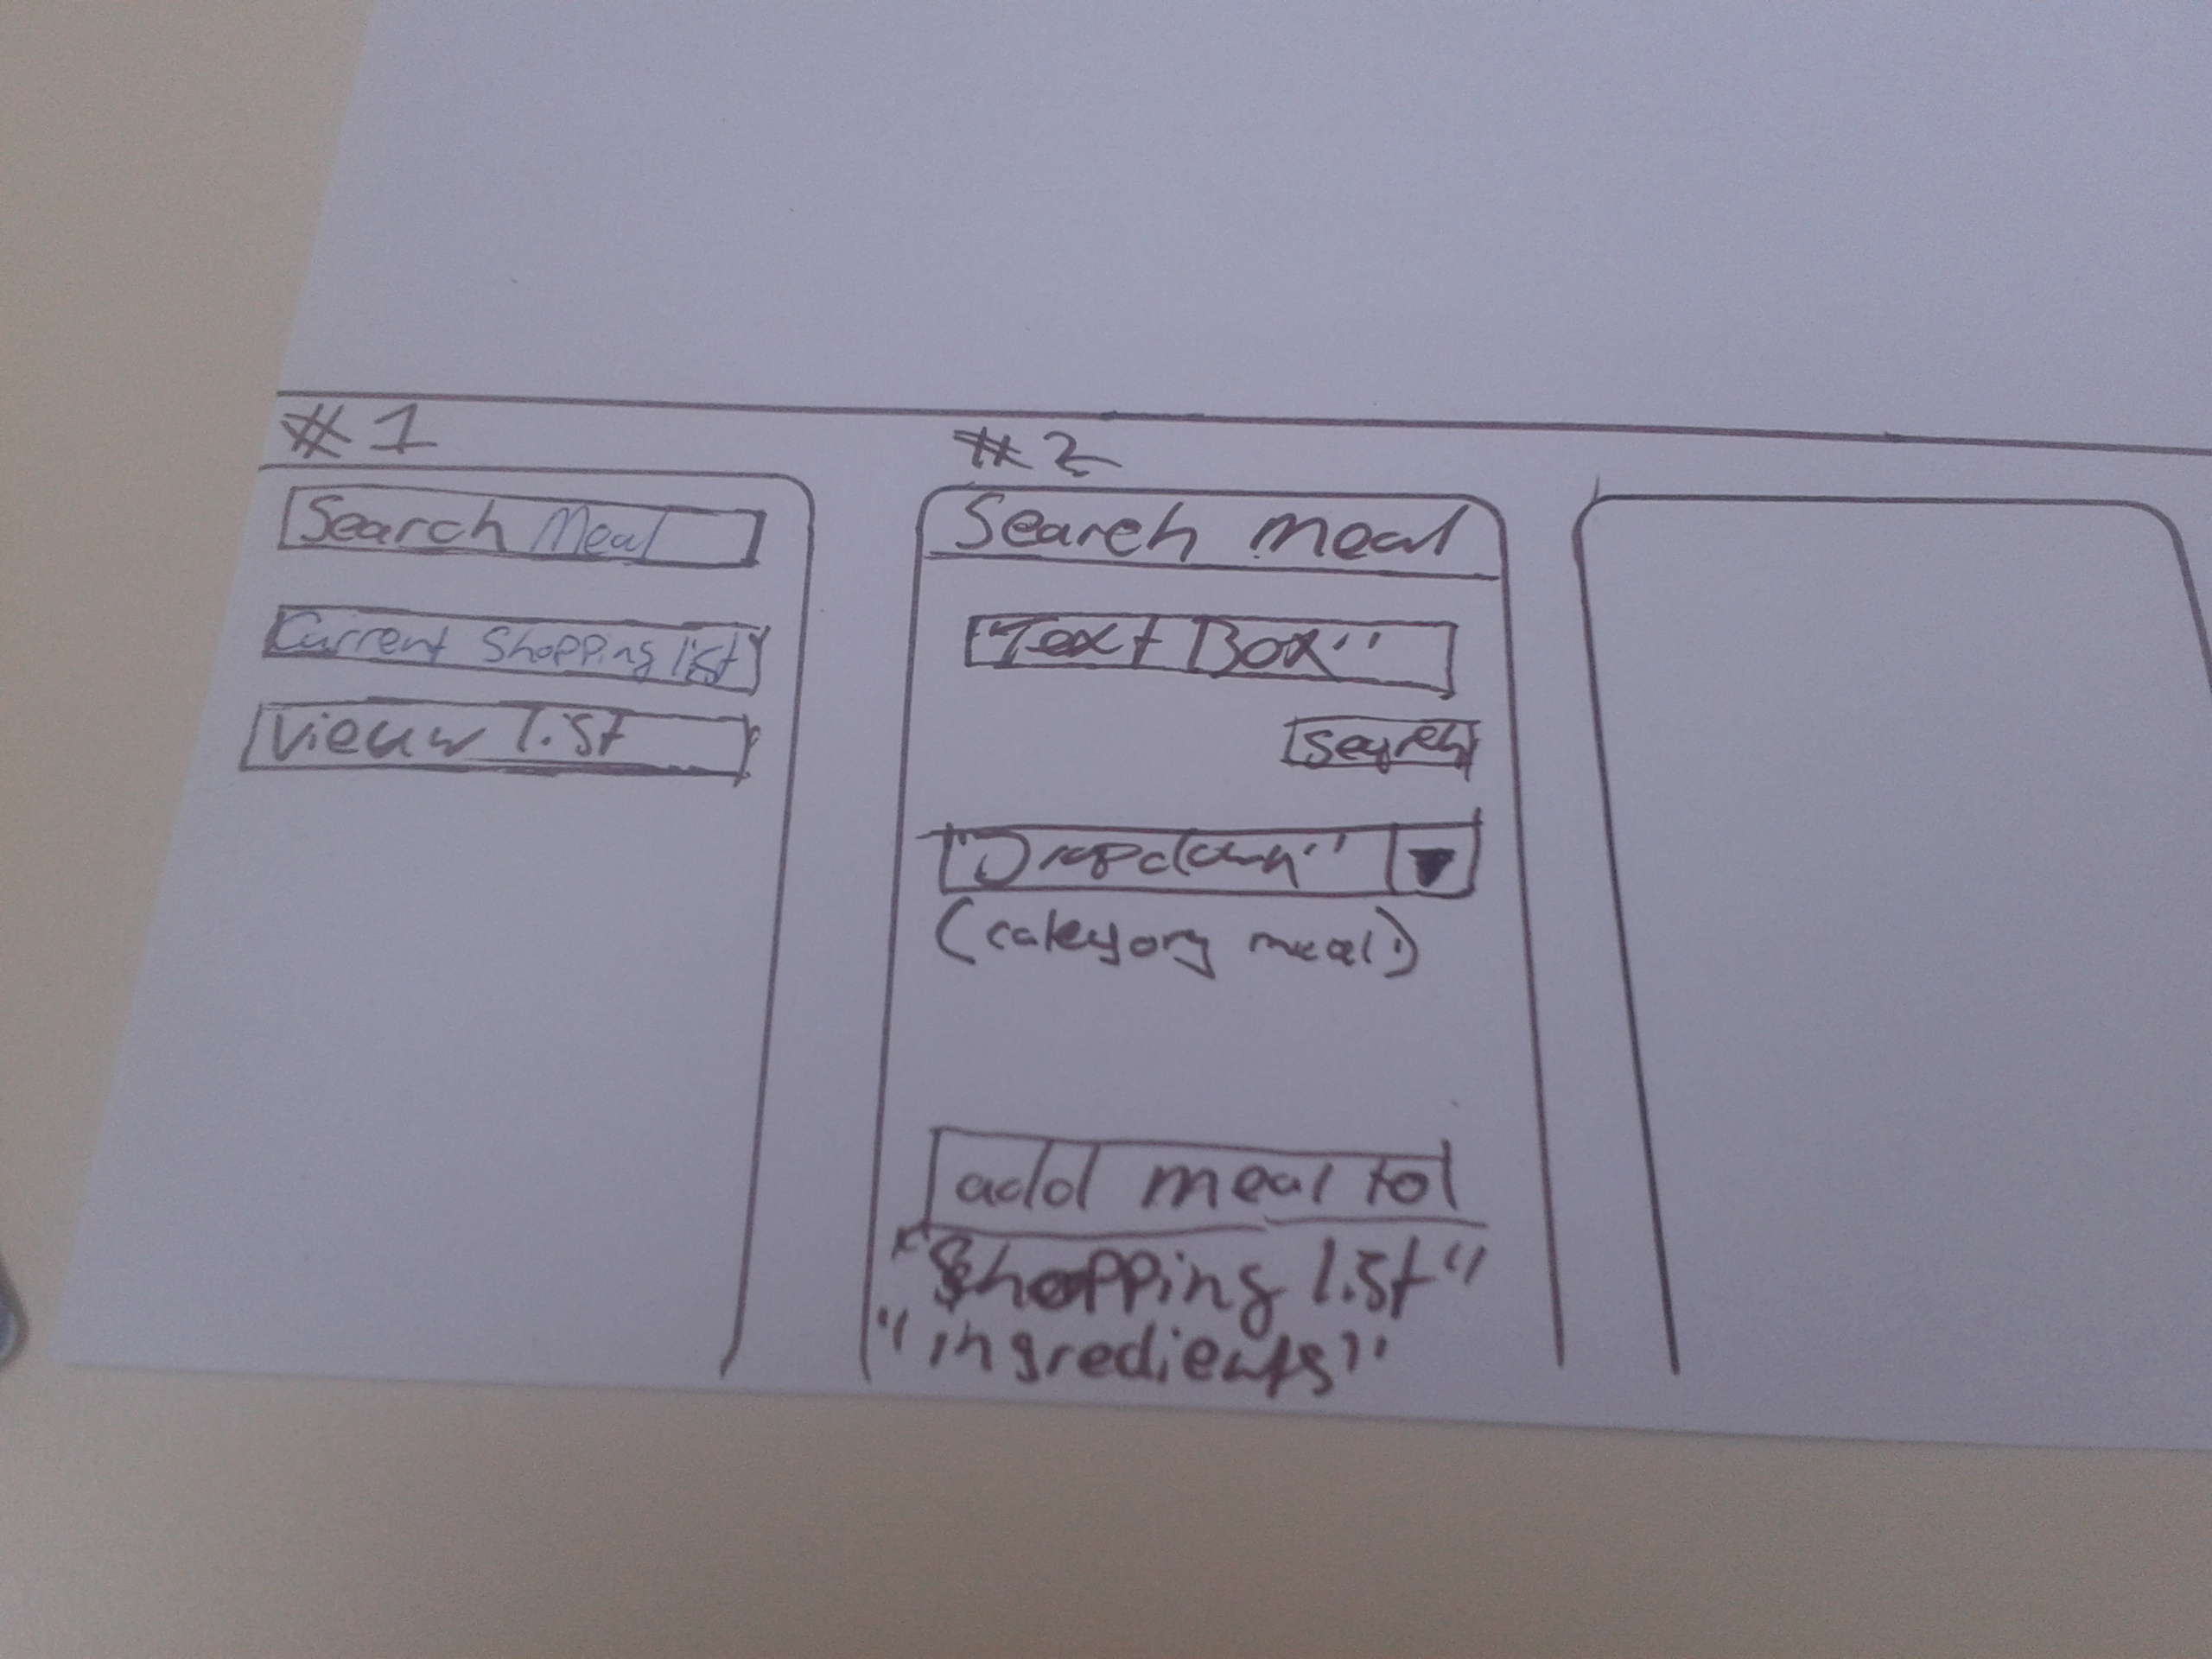 #1
Search Meal
Current Shopping list
Vieuw list
#2
Search meal
"Text Box"
Search
"Dropdown"
(category meal)
add meal to
"Shopping list"
"ingredients"